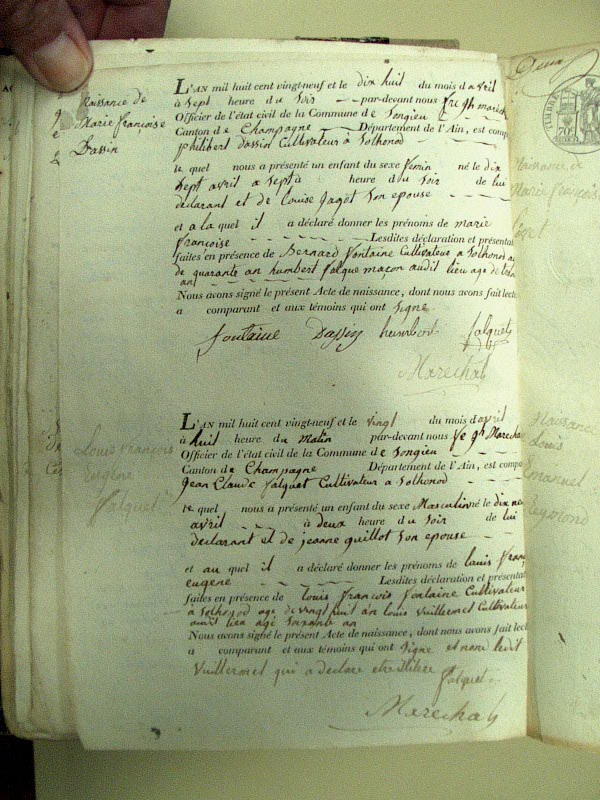 Naissance de
Marie françoise
Dassin
L'AN mil huit cent vingt-neuf et le dix huit du mois d'avril
à sept heure du soir par-devant nous
Officier de l'état civil de la Commune de Songieu
Canton de Champagne Département de l'Ain, est comp
philibert dassin Cultivateur a Solhonod
le quel nous a présenté un enfant du sexe femin né le dix
sept avril a sept à heure du soir de lui
declarant et de Louise Jagot Son epouse
et a la quel il a déclaré donner les prénoms de marie
francoise Lesdites déclaration et présentat
faites en présence de Bernard fontaine Cultivateur a Solhonod
de quarante an humbert falque maçon audit lieu age de
an
Nous avons signé le présent Acte de naissance, dont nous avons fait lect
a comparant et aux témoins qui ont signe
fontaine Dassin humbert falquet
Marechal
L'AN mil huit cent vingt-neuf et le vingt du mois d'avril
à huit heure du Matin par-devant nous Marecha
Officier de l'état civil de la Commune de Songieu
Canton de Champagne Département de l'Ain, est compa
Jean Claude falquet Cultivateur a Solhonod
le quel nous a présenté un enfant du sexe Masculin né le dix neu
avril à deux heure du Soir de lui
declarant et de jeanne guillot Son epouse
et au quel il a déclaré donner les prénoms de louis franç
eugene Lesdites déclaration et présentat
faites en présence de louis françois fontaine Cultivateur
a Solhonod age de vingt huit an louis Vuillermet Cultivateur
audit lieu agé Soixante an
Nous avons signé le présent Acte de naissance, dont nous avons fait lect
à comparant et aux témoins qui ont signe et non ledit
Vuillermet qui a declare etre illitere
falquet
Marechal
Louis françois
Eugene
falquet
Naissance de
Marie françois
Naissance
Louis
Emanuel
Reymond
TIMBRE